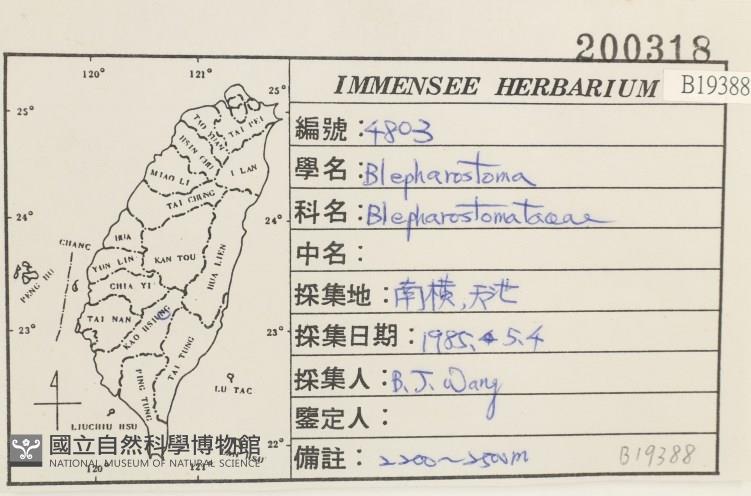 200318
IMMENSEE HERBARIUM
B19388
編號：4803
學名：Blepharostoma
科名：Blepharostomataceae
中名：
採集地：南橫,天池
採集日期：1985. 5.4
採集人：B.J. Wang
鑒定人：
備註：2200～2500m
B19388
120°
121°
25°
25°
TAO YUAN
TAI PEI
HSIN CHU
I LAN
MIAO LI
TAI CHUNG
24°
24°
CHANG
HUA
YUN LIN
KAN TOU
HUA LIEN
PENG HU
CHIA YI
TAI NAN
KAO HSIUNG
23°
23°
TAI TUNG
PING TUNG
LU TAC
LIUCHIU HSU
22°
國立自然科學博物館
NATIONAL MUSEUM OF NATURAL SCIENCE
HSU
120°
121°